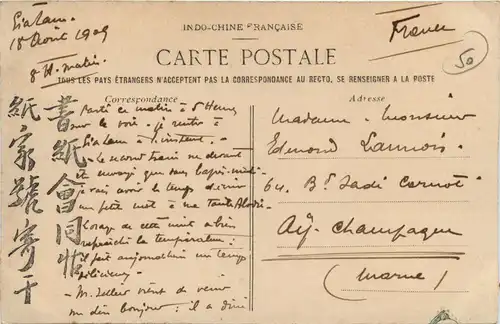 Gialam.
18 Août 1909
8 H. matin.
France
50
INDO-CHINE FRANÇAISE
CARTE POSTALE
TOUS LES PAYS ÉTRANGERS N'ACCEPTENT PAS LA CORRESPONDANCE AU RECTO, SE RENSEIGNER A LA POSTE
Correspondance
Adresse
書紙會同
紙家 寄于
Parti ce matin à 5 Heures
sur la voie. je rentre à
Gialam à l'instant. -
- Le train ne devant
être envoyé que
j'aurai avoir le temps d'écrire
un petit mot à ma Tante
L'orage de cette nuit a bien
rafraîchi la température :
il fait aujourd'hui un temps
délicieux -
- M. vient de venir
me dire bonjour : il a
Madame - Monsieur
Edmond Lannois.
64. Bd Sadi Carnot
Aÿ-Champagne
(Marne)